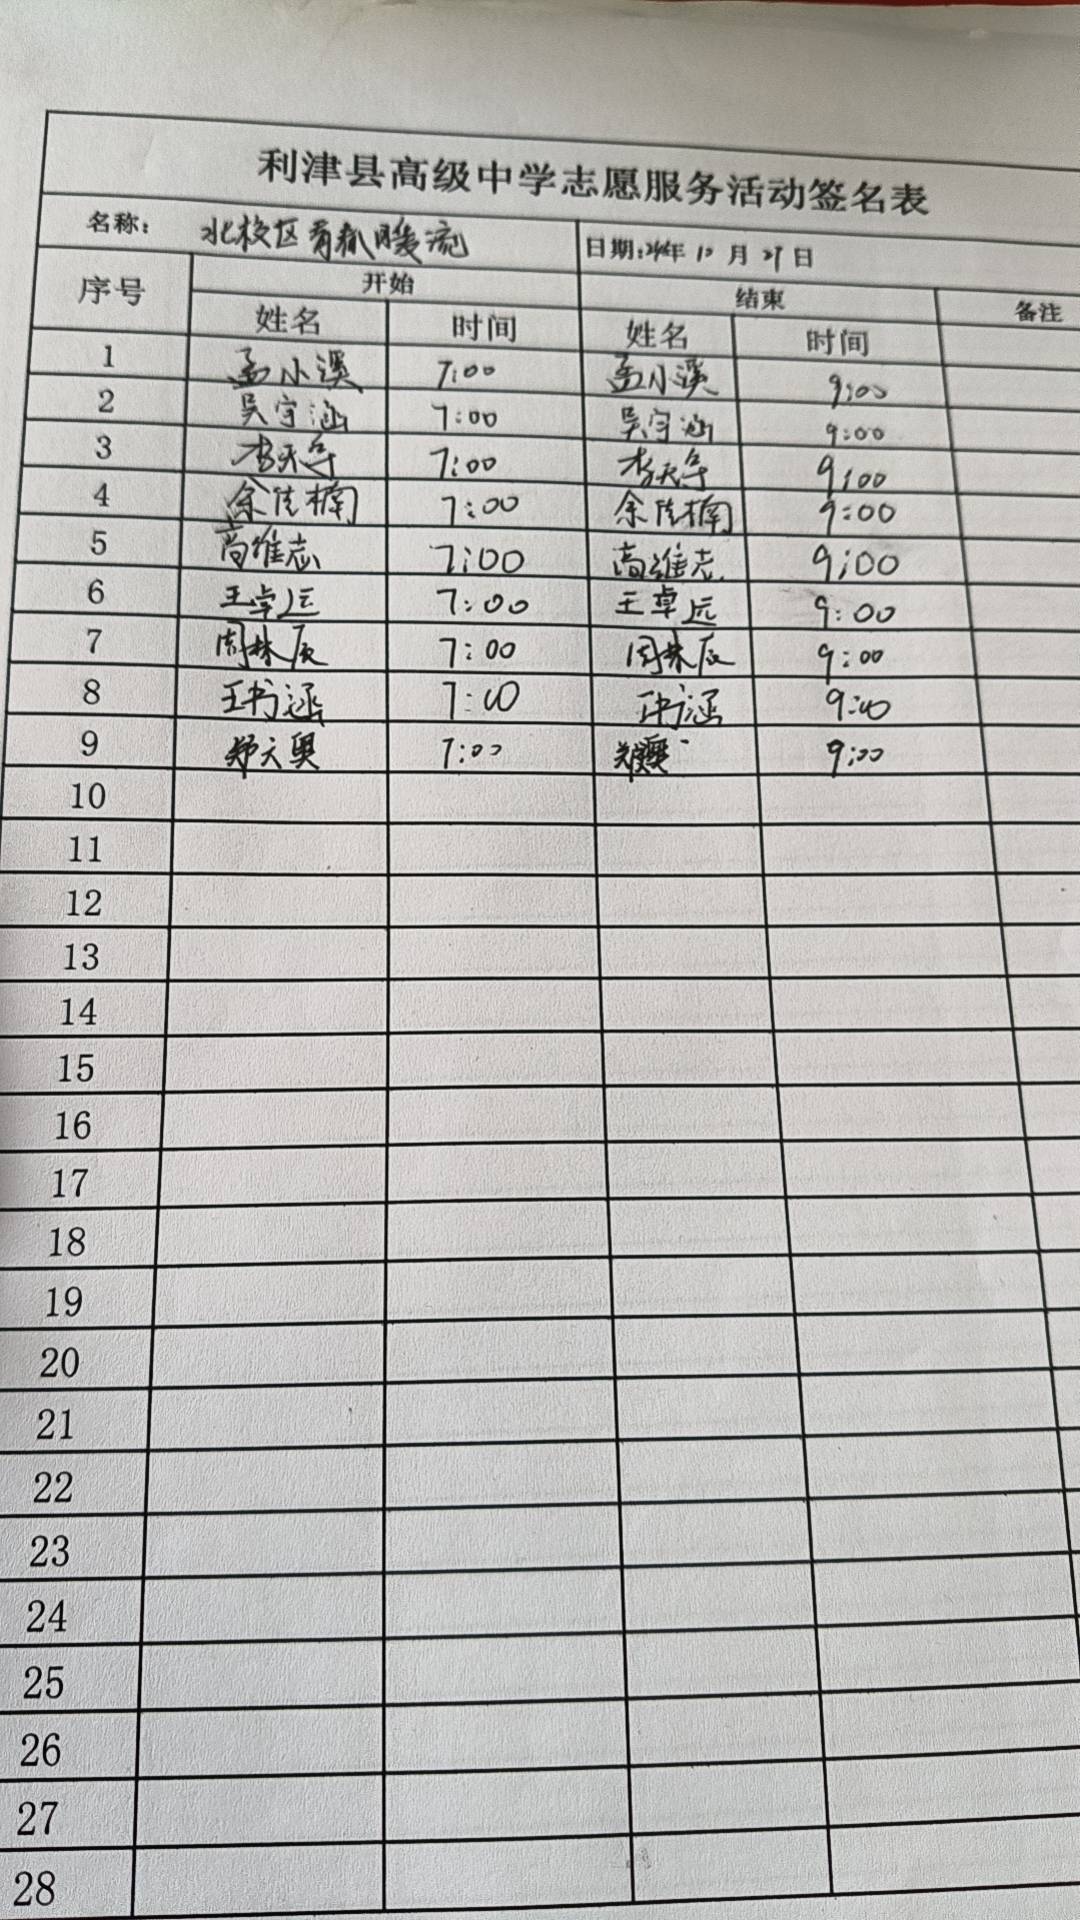 利津县高级中学志愿服务活动签名表
名称： 北校区 暖流 日期: 年 10 月 27 日
序号 开始 结束 备注
姓名 时间 姓名 时间
1 孟小溪 7:00 孟小溪 9:00
2 吴宇涵 7:00 吴宇涵 9:00
3 7:00 9:00
4 余佳楠 7:00 余佳楠 9:00
5 高维志 7:00 高维志 9:00
6 王卓远 7:00 王卓远 9:00
7 周林辰 7:00 周林辰 9:00
8 王书涵 7:00 王书涵 9:00
9 郑文奥 7:00 9:00
10
11
12
13
14
15
16
17
18
19
20
21
22
23
24
25
26
27
28